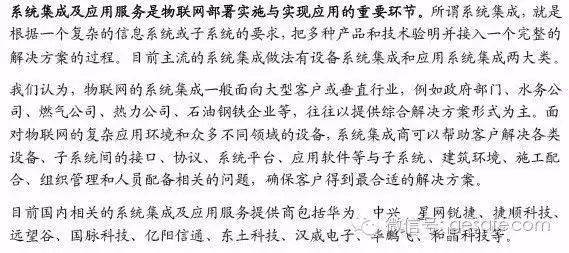 系统集成及应用服务是物联网部署实施与实现应用的重要环节。所谓系统集成，就是
根据一个复杂的信息系统或子系统的要求，把多种产品和技术验明并接入一个完整的
解决方案的过程。目前主流的系统集成做法有设备系统集成和应用系统集成两大类。
我们认为，物联网的系统集成一般面向大型客户或垂直行业，例如政府部门、水务公
司、燃气公司、热力公司、石油钢铁企业等，往往以提供综合解决方案形式为主。面
对物联网的复杂应用环境和众多不同领域的设备，系统集成商可以帮助客户解决各类
设备、子系统间的接口、协议、系统平台、应用软件等与子系统、建筑环境、施工配
合、组织管理和人员配备相关的问题，确保客户得到最合适的解决方案。
目前国内相关的系统集成及应用服务提供商包括华为、中兴、星网锐捷、捷顺科技、
远望谷、国脉科技、亿阳信通、东土科技、汉威电子、华鹏飞、和晶科技等。
微信号: